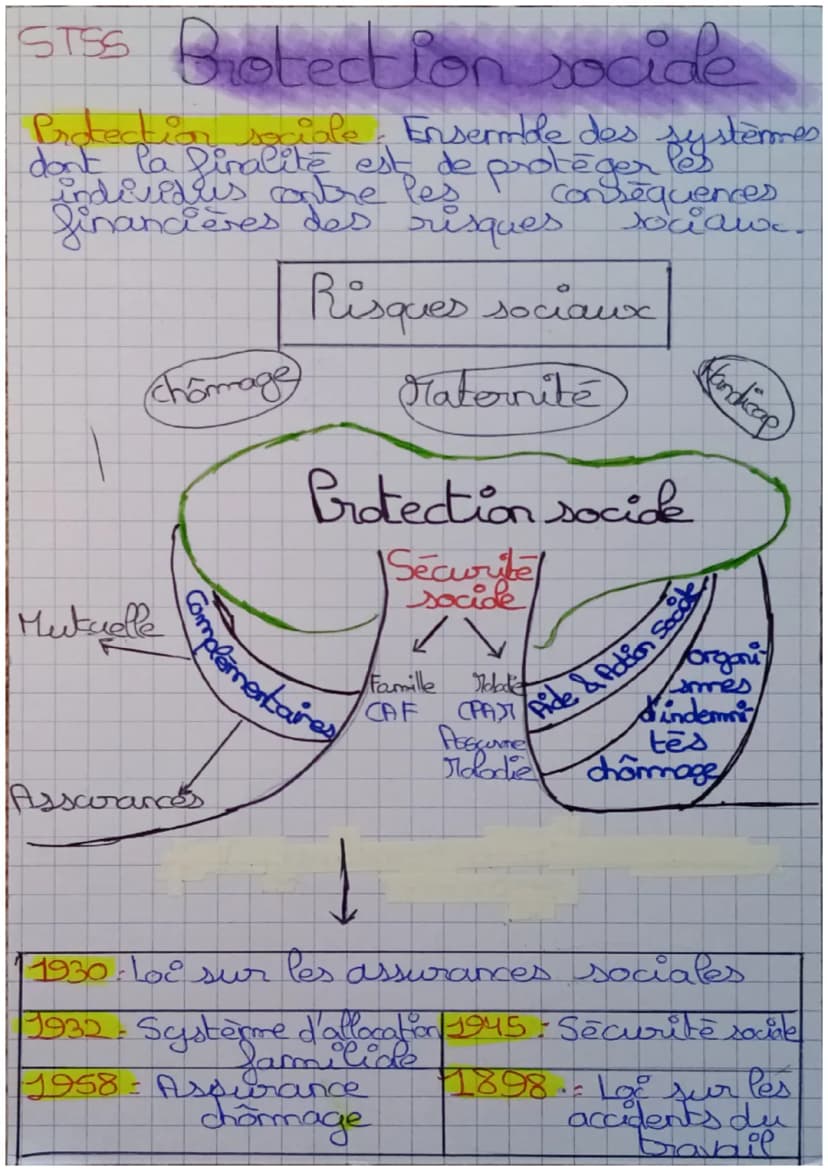 STSS
Protection sociale
Protection sociale : Ensemble des systèmes
dont la finalité est de protéger les
individus contre les conséquences
financières des risques sociaux.
Risques sociaux
chômage
Maternité
Handicap
Protection sociale
Sécurité
sociale
Mutuelle
Complémentaires
Assurances
Famille
CAF
Maladie
CPAM
Assurance
Maladie
Aide & Action Sociale
organi-
smes
d'indemni-
tés
chômage
1930 : Loi sur les assurances sociales
1932 : Système d'allocation
familiale
1945 : Sécurité sociale
1958 : Assurance
chômage
1898 : Loi sur les
accidents du
travail